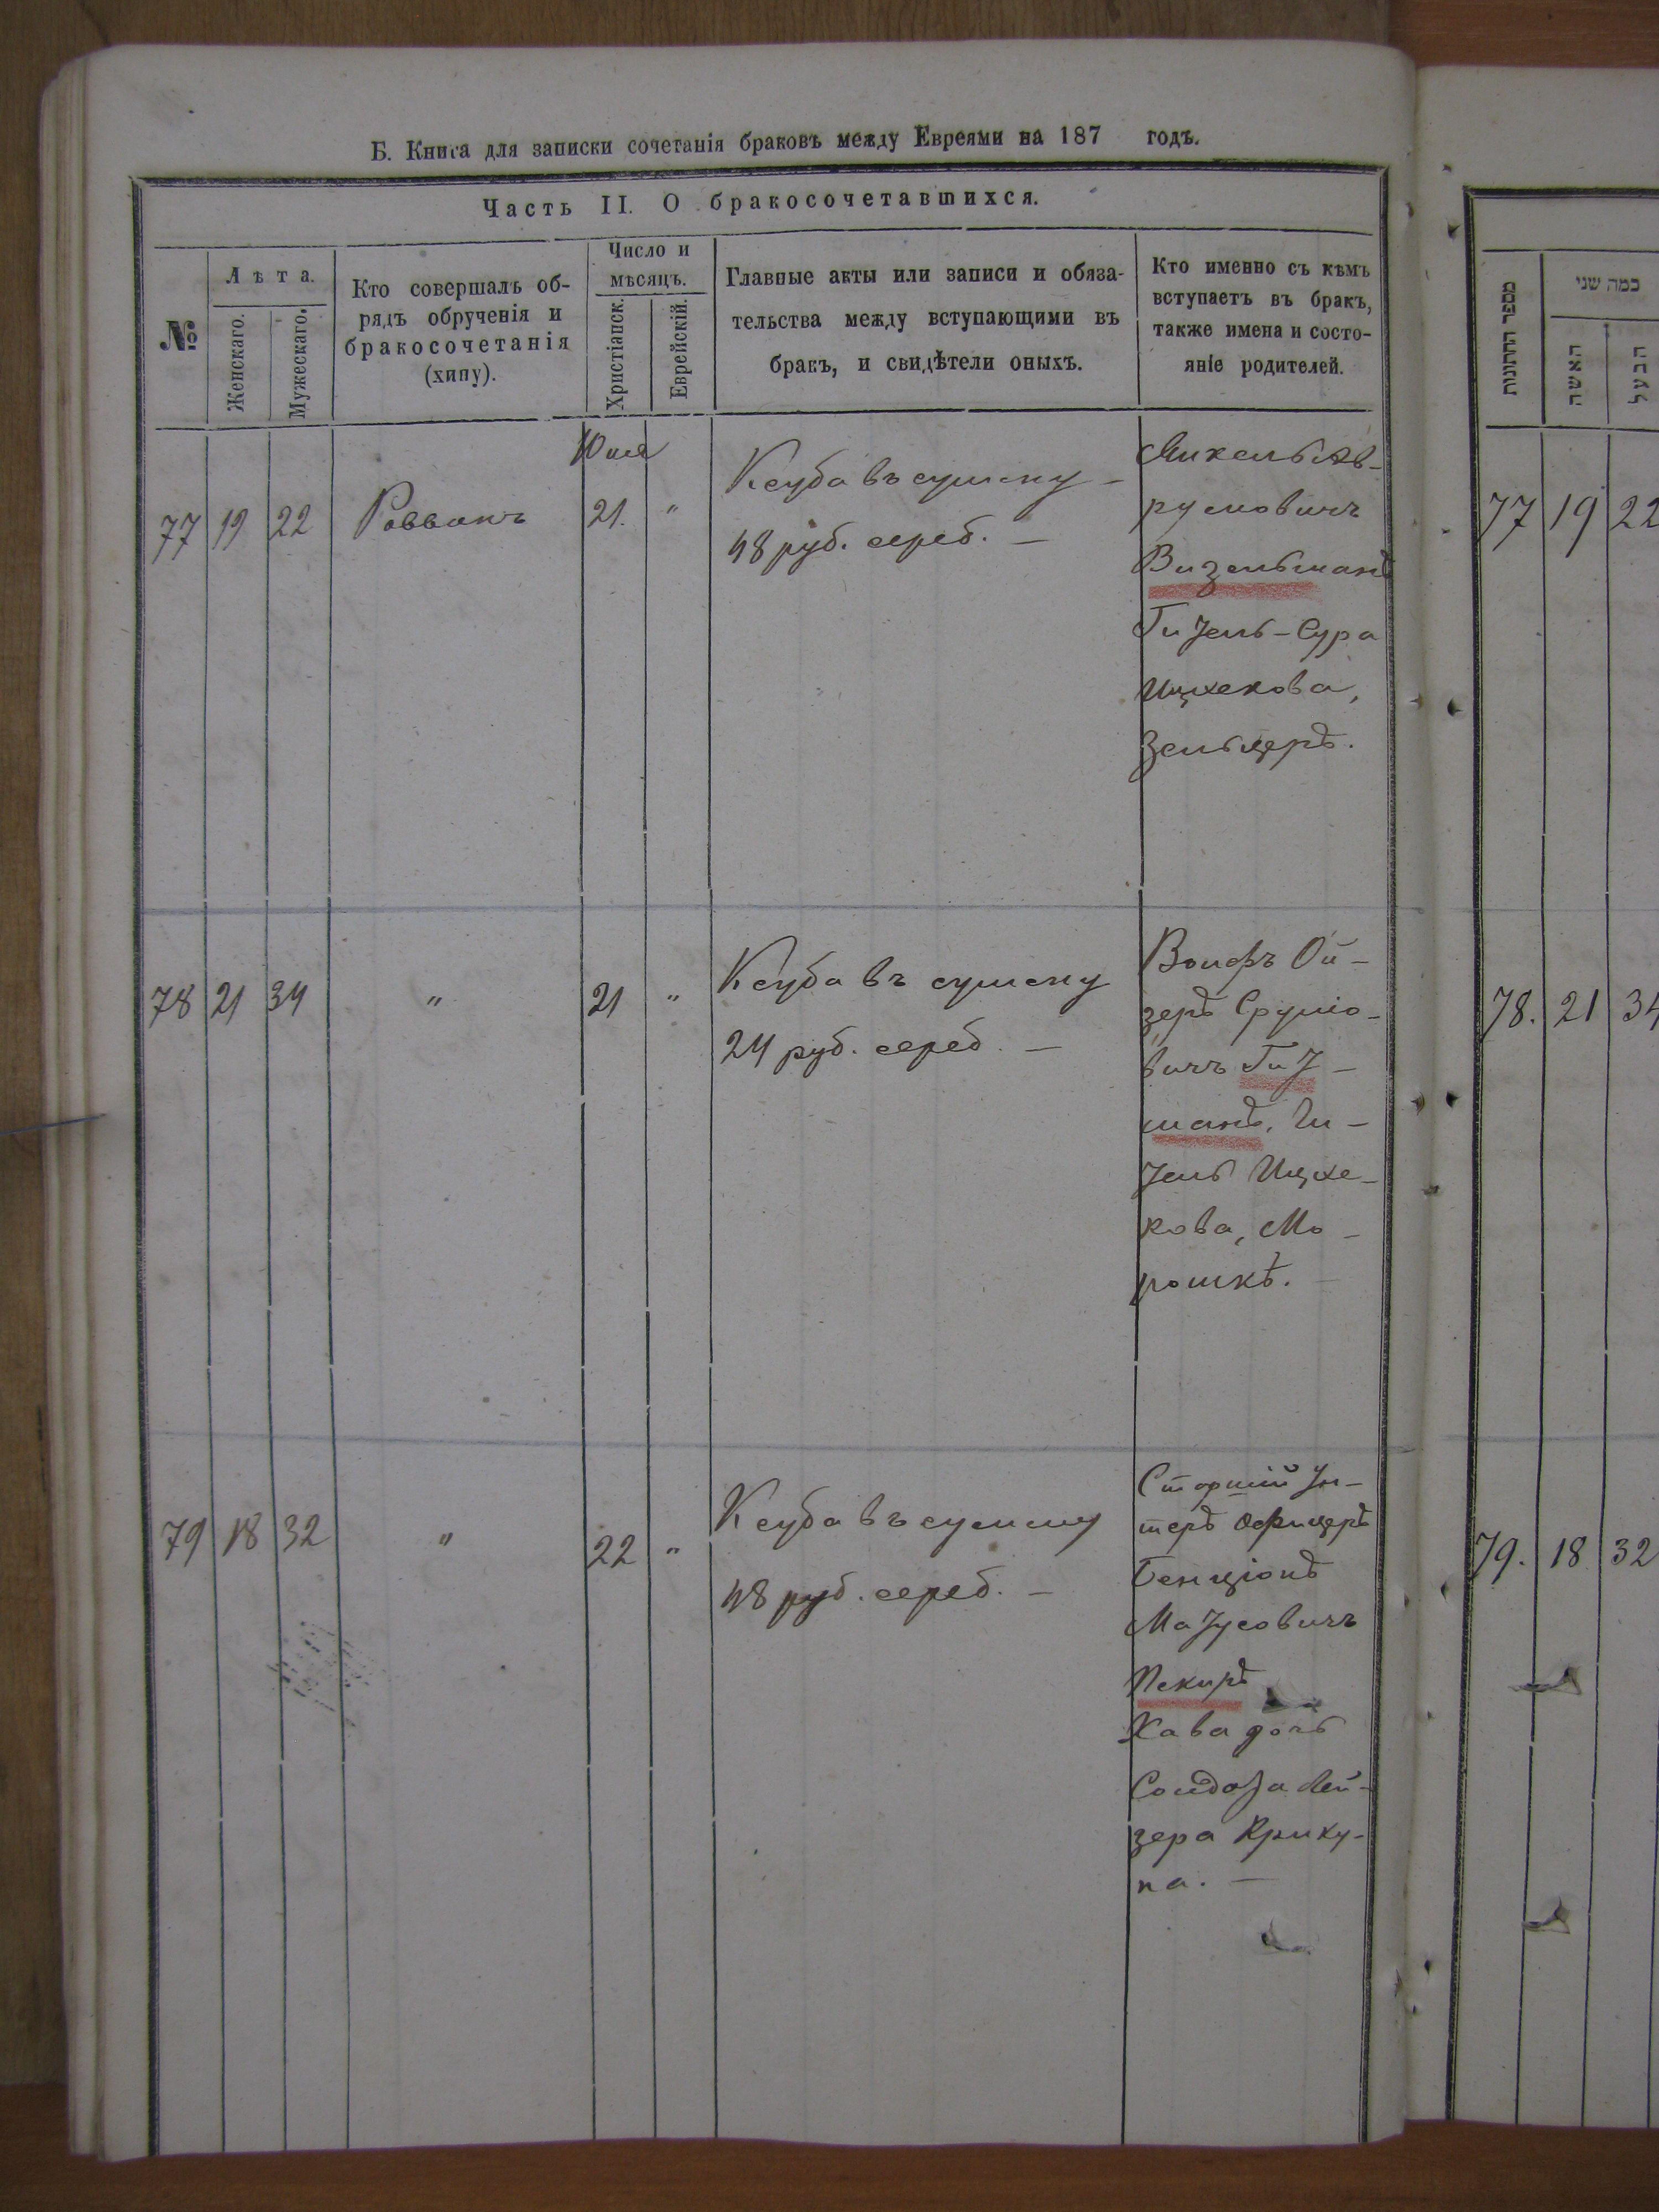 Б. Книга для записки сочетанія браковъ между Евреями на 187 годъ.
Часть II. О бракосочетавшихся.
№
Лѣта.
Женскаго.
Мужескаго.
Кто совершалъ об-
рядъ обрученія и
бракосочетанія
(хипу).
Число и
мѣсяцъ.
Христіанск.
Еврейскій.
Главные акты или записи и обяза-
тельства между вступающими въ
бракъ, и свидѣтели оныхъ.
Кто именно съ кѣмъ
вступаетъ въ бракъ,
также имена и состо-
яніе родителей.
מספר החתונות
כמה שני
האשה
הבעל
77 19 22
Раввинъ
Юля
21. "
Ксуба въ сумму -
48 руб. сереб. -
Михель Ав-
румовичъ
Визельманъ
Гитель - Сура
Ицхекова,
Зельцеръ.
77 19 22
78 21 34 " 21 "
Ксуба въ сумму
24 руб. сереб. -
Вольфъ Ой-
зеръ Срулio-
вичъ Гит-
манъ,
тель Ицхе-
кова, Мо-
рошкъ.
78. 21 34
79 18 32 " 22 "
Ксуба въ сумму
48 руб. сереб. -
Старшій Ун-
теръ Офицеръ
Бенціонъ
Матусовичъ
Пекиръ
Хава дочь
зера Крику-
на. -
79. 18 32